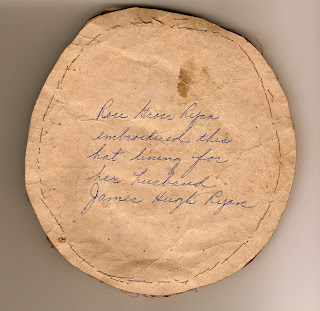 Rose Gross Ryan
embroidered this
hat lining for
her husband
James Hugh Ryan